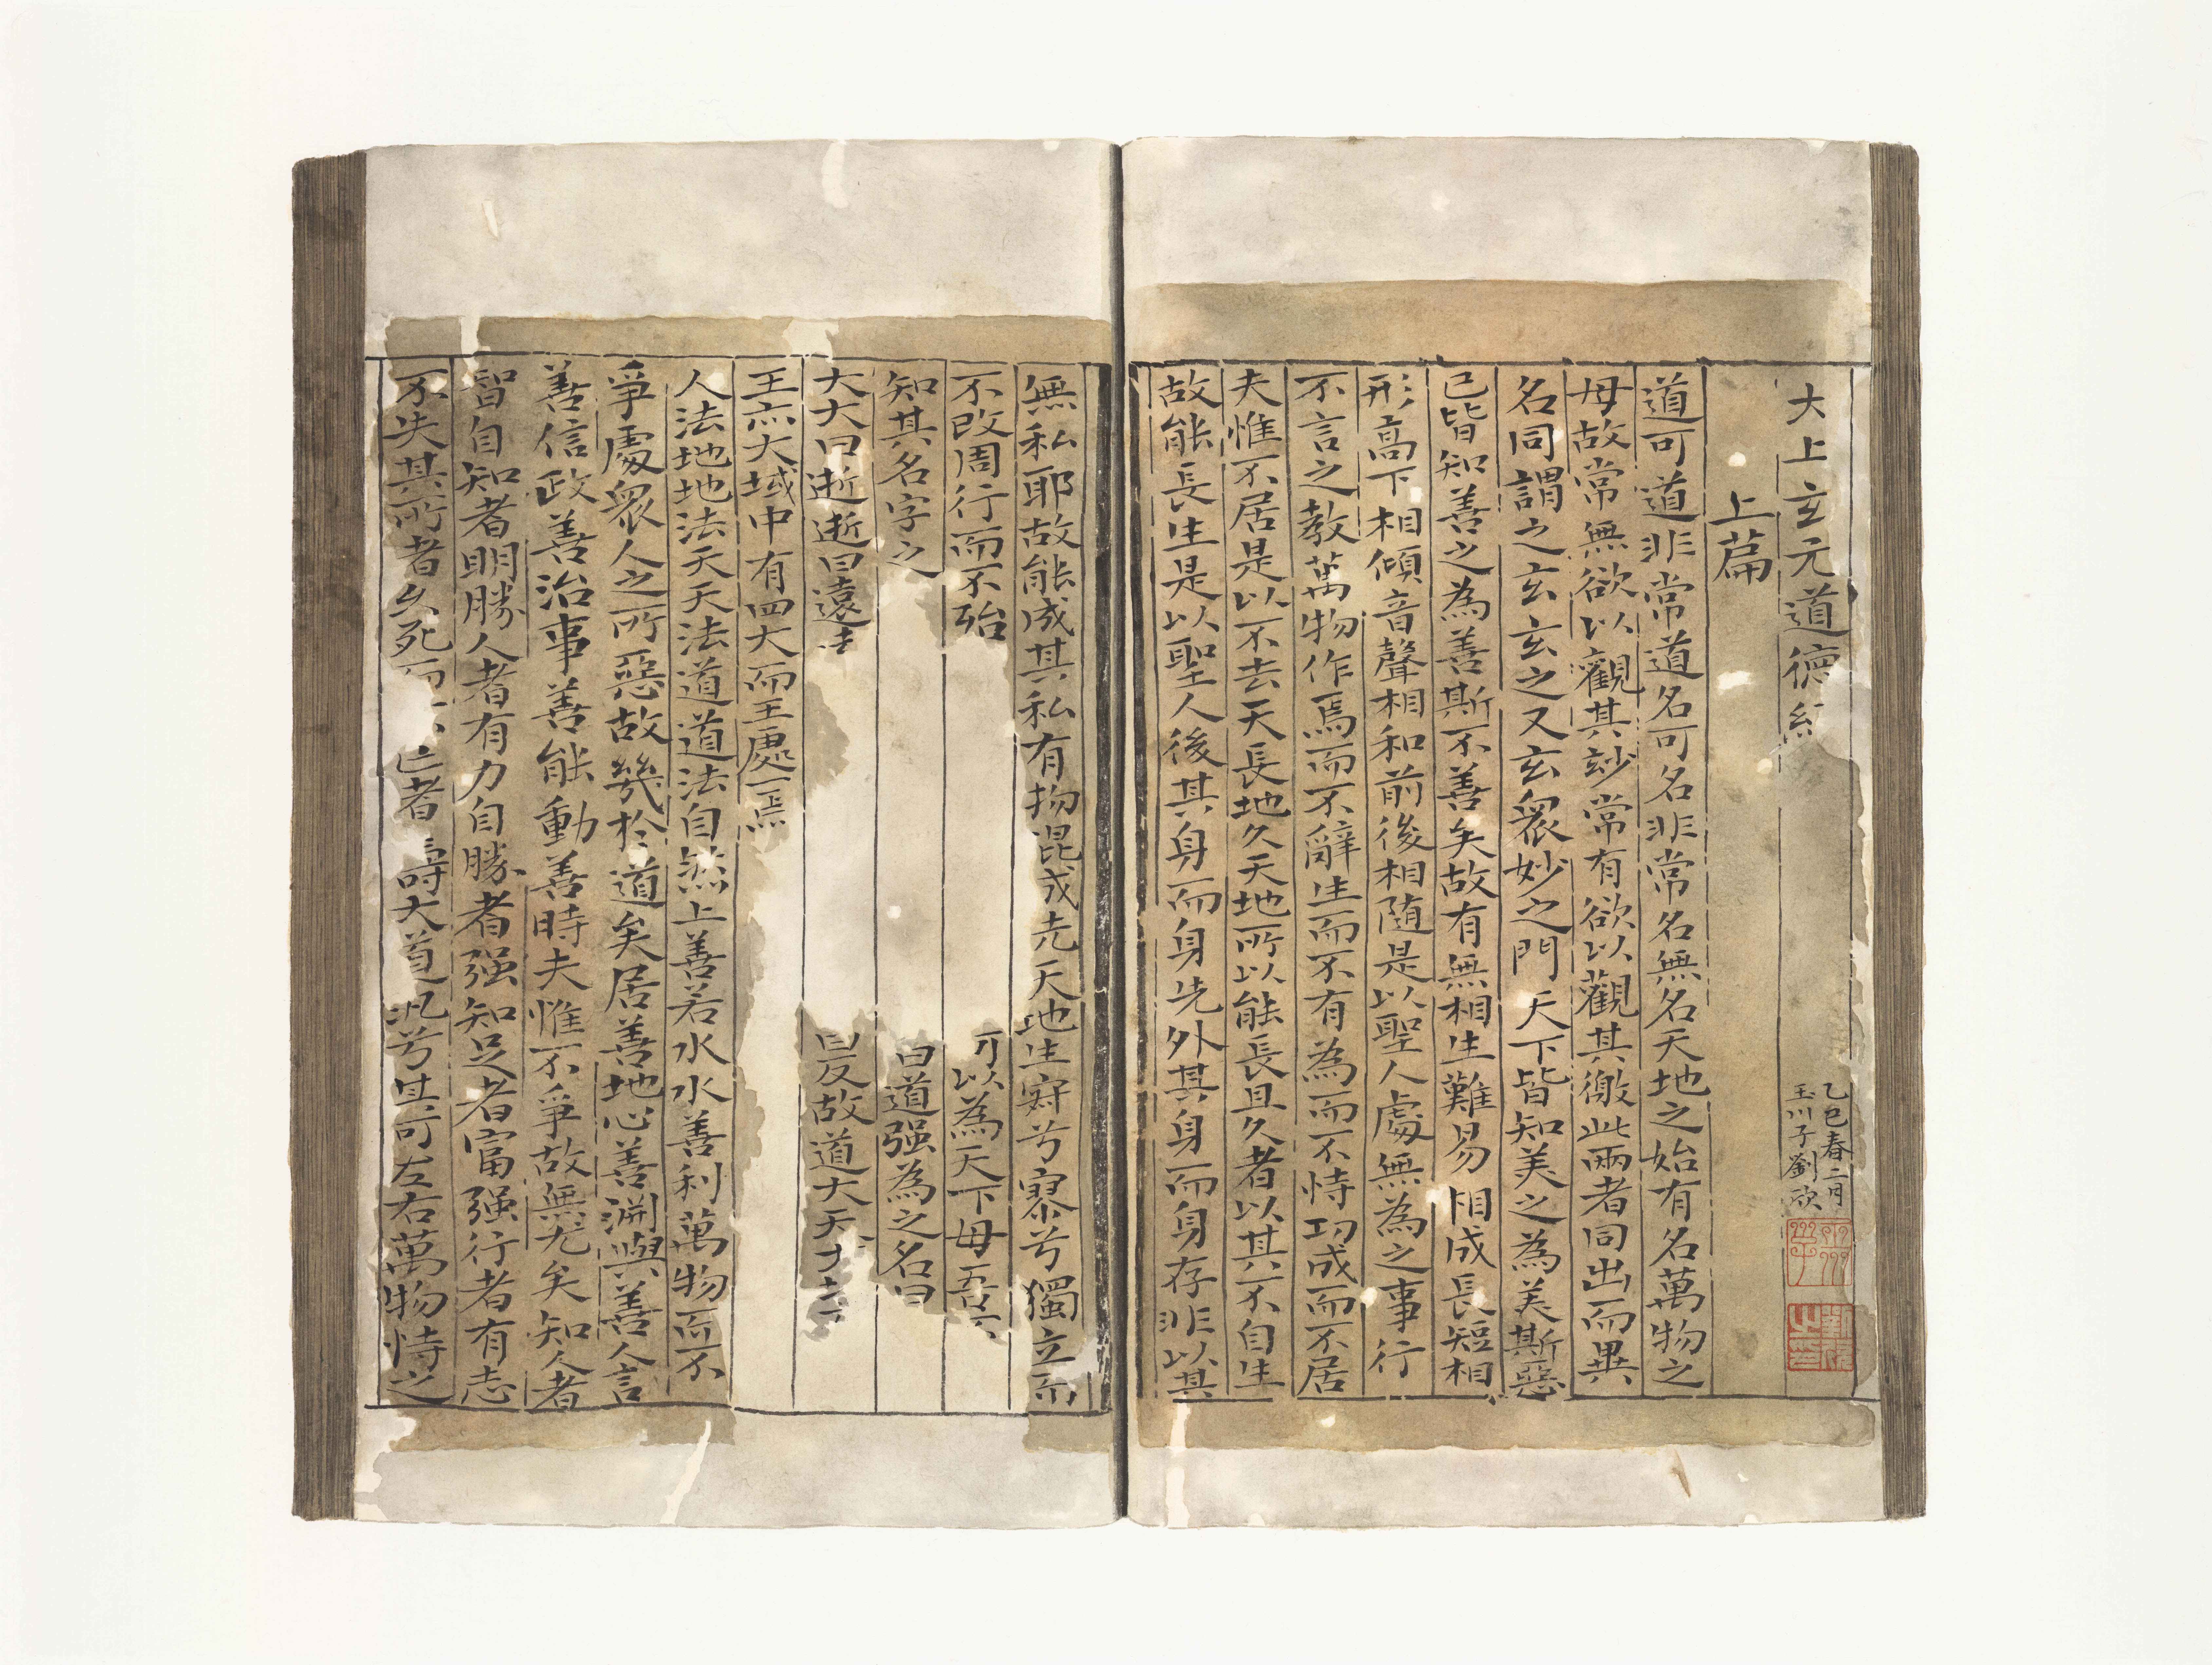 大上玄元道德經
乙巳春二月
玉川子劉欣
上篇
道可道非常道名可名非常名無名天地之始有名萬物之
母故常無欲以觀其玅常有欲以觀其徼此兩者同出而異
名同謂之玄玄之又玄眾妙之門天下皆知美之為美斯惡
已皆知善之為善斯不善矣故有無相生難易相成長短相
形高下相傾音聲相和前後相随是以聖人處無為之事行
不言之教萬物作焉而不辭生而不有為而不恃功成而不居
夫惟不居是以不去天長地久天地所以能長且久者以其不自生
故能長生是以聖人後其身而身先外其身而身存非以其
無私耶故能成其私有物混成先天地生寂兮寥兮獨立而
不改周行而不殆可以為天下母吾
知其名字之曰道强為之名曰
大大曰逝逝曰遠曰反故道大天大
王亦大域中有四大而王處一焉
人法地地法天天法道道法自然上善若水水善利萬物而不
爭處眾人之所惡故幾於道矣居善地心善淵與善人言
善信政善治事善能動善時夫惟不爭故無尤矣知人者
智自知者明勝人者有力自勝者强知足者富强行者有志
不失其所者久死而不亡者壽大道汎兮其可左右萬物恃之